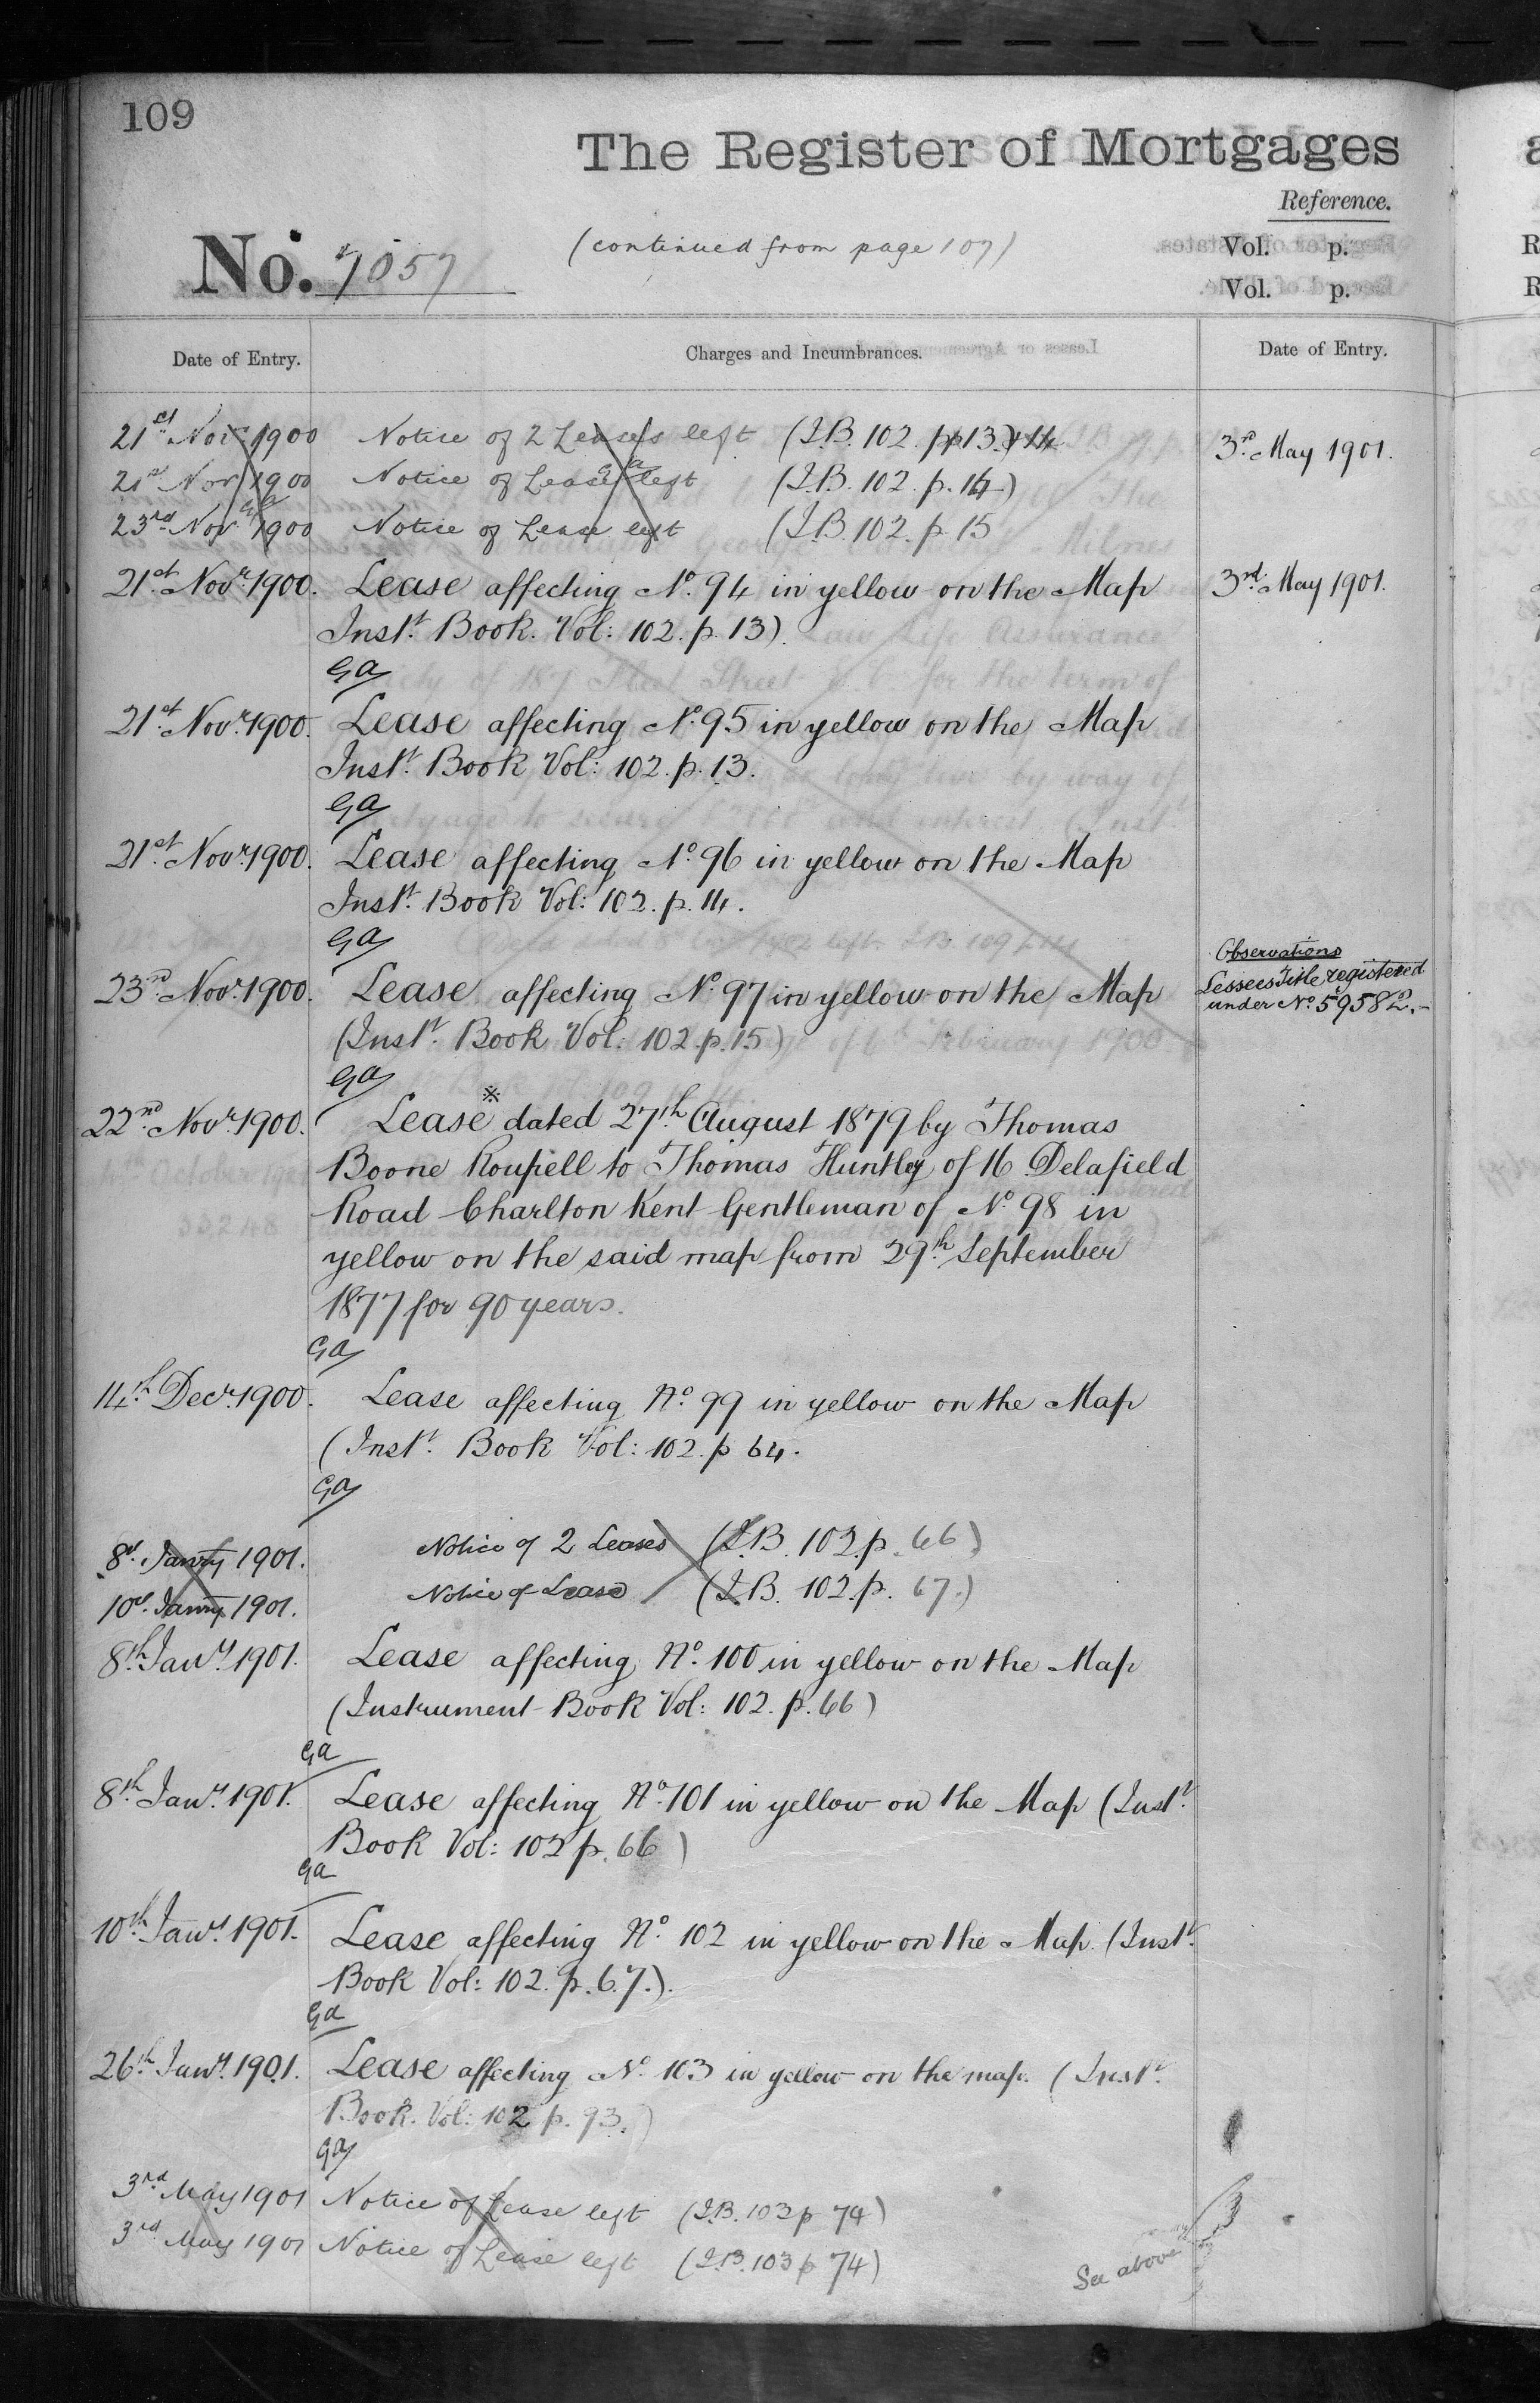 109
The Register of Mortgages
Reference.
No. 7057
(continued from page 107)
Vol. p.
Vol. p.
Date of Entry.
Charges and Incumbrances.
Date of Entry.
21st Nov 1900 Notice of 2 Leases left (I.B. 102. p 13)
3rd May 1901.
21st Nov 1900 Notice of Lease left (I.B. 102. p. 14)
23rd Nov 1900 Notice of Lease left (I.B. 102. p 15
21st Novr. 1900. Lease affecting No. 94 in yellow on the Map
3rd May 1901.
Inst. Book. Vol: 102. p. 13)
GA
21st Novr. 1900. Lease affecting No. 95 in yellow on the Map
Inst. Book Vol: 102. p. 13.
GA
21st Novr. 1900. Lease affecting No. 96 in yellow on the Map
Inst. Book Vol: 102. p. 14.
GA
Observations
23rd Novr. 1900. Lease affecting No. 97 in yellow on the Map
Lessees Title registered
under No. 59582.-
(Inst. Book Vol: 102. p. 15)
GA
22nd Novr. 1900. Lease※ dated 27th August 1879 by Thomas
Boone Roupell to Thomas Huntley of 16 Delafield
Road Charlton Kent Gentleman of No. 98 in
yellow on the said map from 29th September
1877 for 90 years.
GA
14th Decr. 1900. Lease affecting No. 99 in yellow on the Map
(Inst. Book Vol: 102. p 64.
GA
8th Janry 1901. Notice of 2 Leases (I.B. 102 p. 66)
10th Janry 1901. Notice of Lease (I.B. 102. p. 67.)
8th Jany. 1901. Lease affecting No. 100 in yellow on the Map
(Instrument Book Vol: 102. p. 66)
GA
8th Jany. 1901. Lease affecting No. 101 in yellow on the Map (Inst.
Book Vol: 102 p. 66)
GA
10th Jany. 1901. Lease affecting No. 102 in yellow on the Map. (Inst.
Book Vol: 102. p. 67.).
GA
26th Jany. 1901. Lease affecting No. 103 in yellow on the map. (Inst.
Book. Vol: 102 p. 93.)
GA
3rd May 1901 Notice of Lease left (I.B. 103 p 74)
3rd May 1901 Notice of Lease left (I.B. 103 p 74)
See above